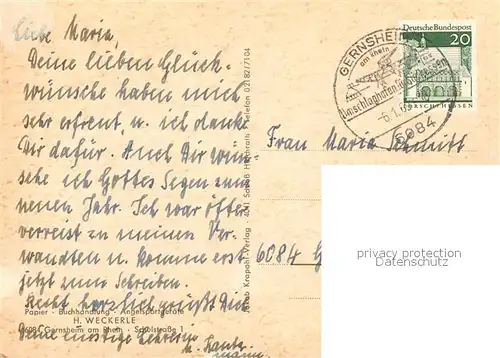 Liebe Maria,
Deine lieben Glück-
wünsche haben mich
sehr erfreut, u. ich danke
Dir dafür. Auch Dir wün-
sche ich Gottes Segen zum
neuen Jahr. Ich war öfter
verreist zu meinen Ver-
wandten u. komme erst
jetzt zum Schreiben.
Recht herzlich grüßt Dich
Deine einstige Lehrerin
Papier · Buchhandlung · Angelsportgeräte
H. WECKERLE
6084 Gernsheim am Rhein · Schulstraße 1
Jakob Krapohl-Verlag · 4041 Schloß · Telefon 02182/7104
GERNSHEIM
am Rhein
Umschlaghafen
-6.1.
6084
Deutsche Bundespost
20
LORSCH/HESSEN
Frau Maria Schmitt
6084 G
privacy protection
Datenschutz